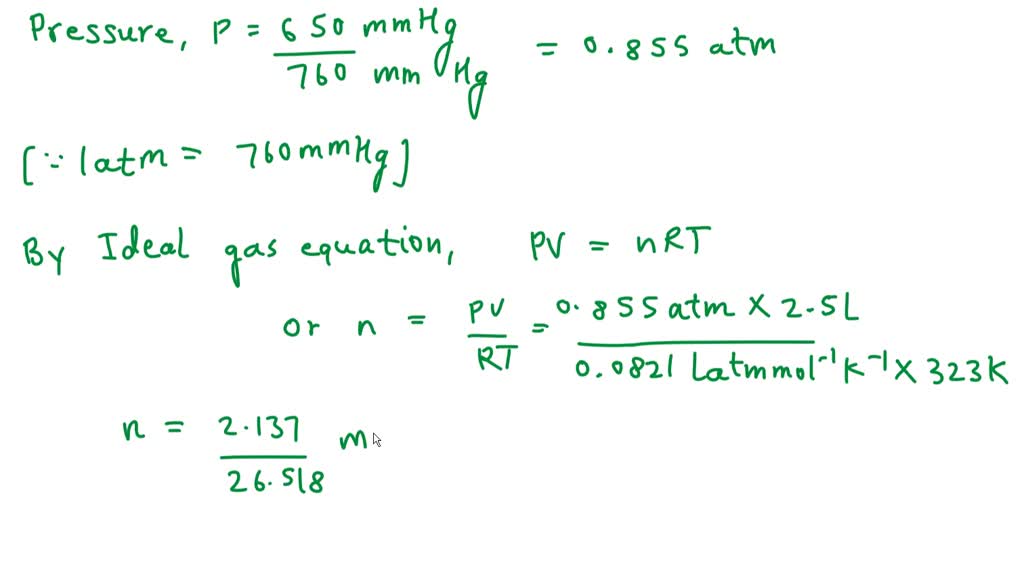 Pressure, P = 650 mmHg / 760 mmHg = 0.855 atm
[∵ 1atm = 760mmHg]
By Ideal gas equation, PV = nRT
or n = PV / RT = 0.855 atm X 2.5L / 0.0821 Latmmol⁻¹K⁻¹ X 323K
n = 2.137 / 26.518 m